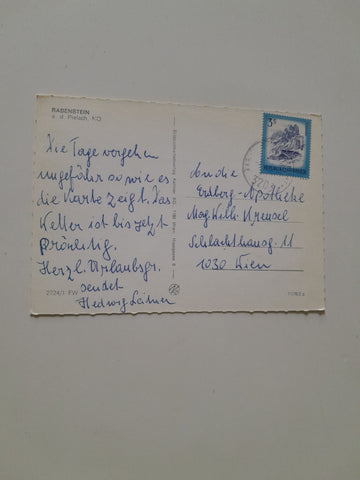 RABENSTEIN
a. d. Pielach, NÖ
Die Tage vergehen
ungefähr so wie es
die Karte zeigt. Das
Wetter ist bis jetzt
Herzl. Urlaubsgr.
sendet
Hedwig
2724/1 FW
3 S
REPUBLIK ÖSTERREICH
An die
Erdberg-Apotheke
Mag. Willi
Schlachthausg. 11
1030 Wien